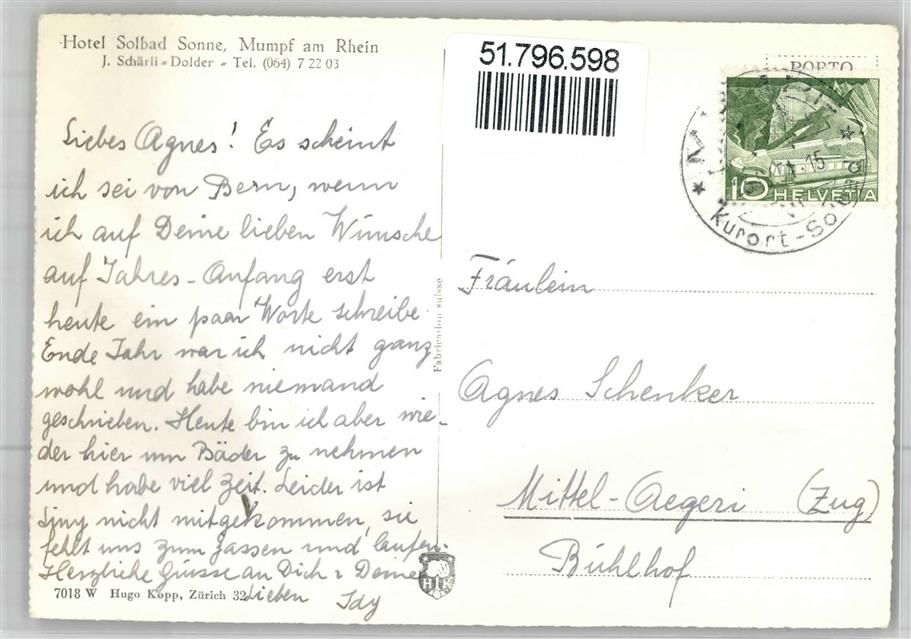 Hotel Solbad Sonne, Mumpf am Rhein
J. Schärli - Dolder - Tel. (064) 7 22 03
51.796.598
PORTO
10 HELVETIA
Kurort-So
15
Liebes Agnes! Es scheint
ich sei von Bern, wenn
ich auf Deine lieben Wünsche
auf Jahres-Anfang erst
heute ein paar Worte schreibe.
Ende Jahr war ich nicht ganz
wohl und habe niemand
geschrieben. Heute bin ich aber wie-
der hier um Bäder zu nehmen
und habe viel Zeit. Leider ist
nicht mitgekommen, sie
fehlt uns zum Jassen und laufen.
Herzliche Grüsse an Dich & Deine
lieben Idy
Fabrication suisse
Fräulein
Agnes Schenker
Mittel-Aegeri (Zug)
Bühlhof
7018 W Hugo Kopp, Zürich 32